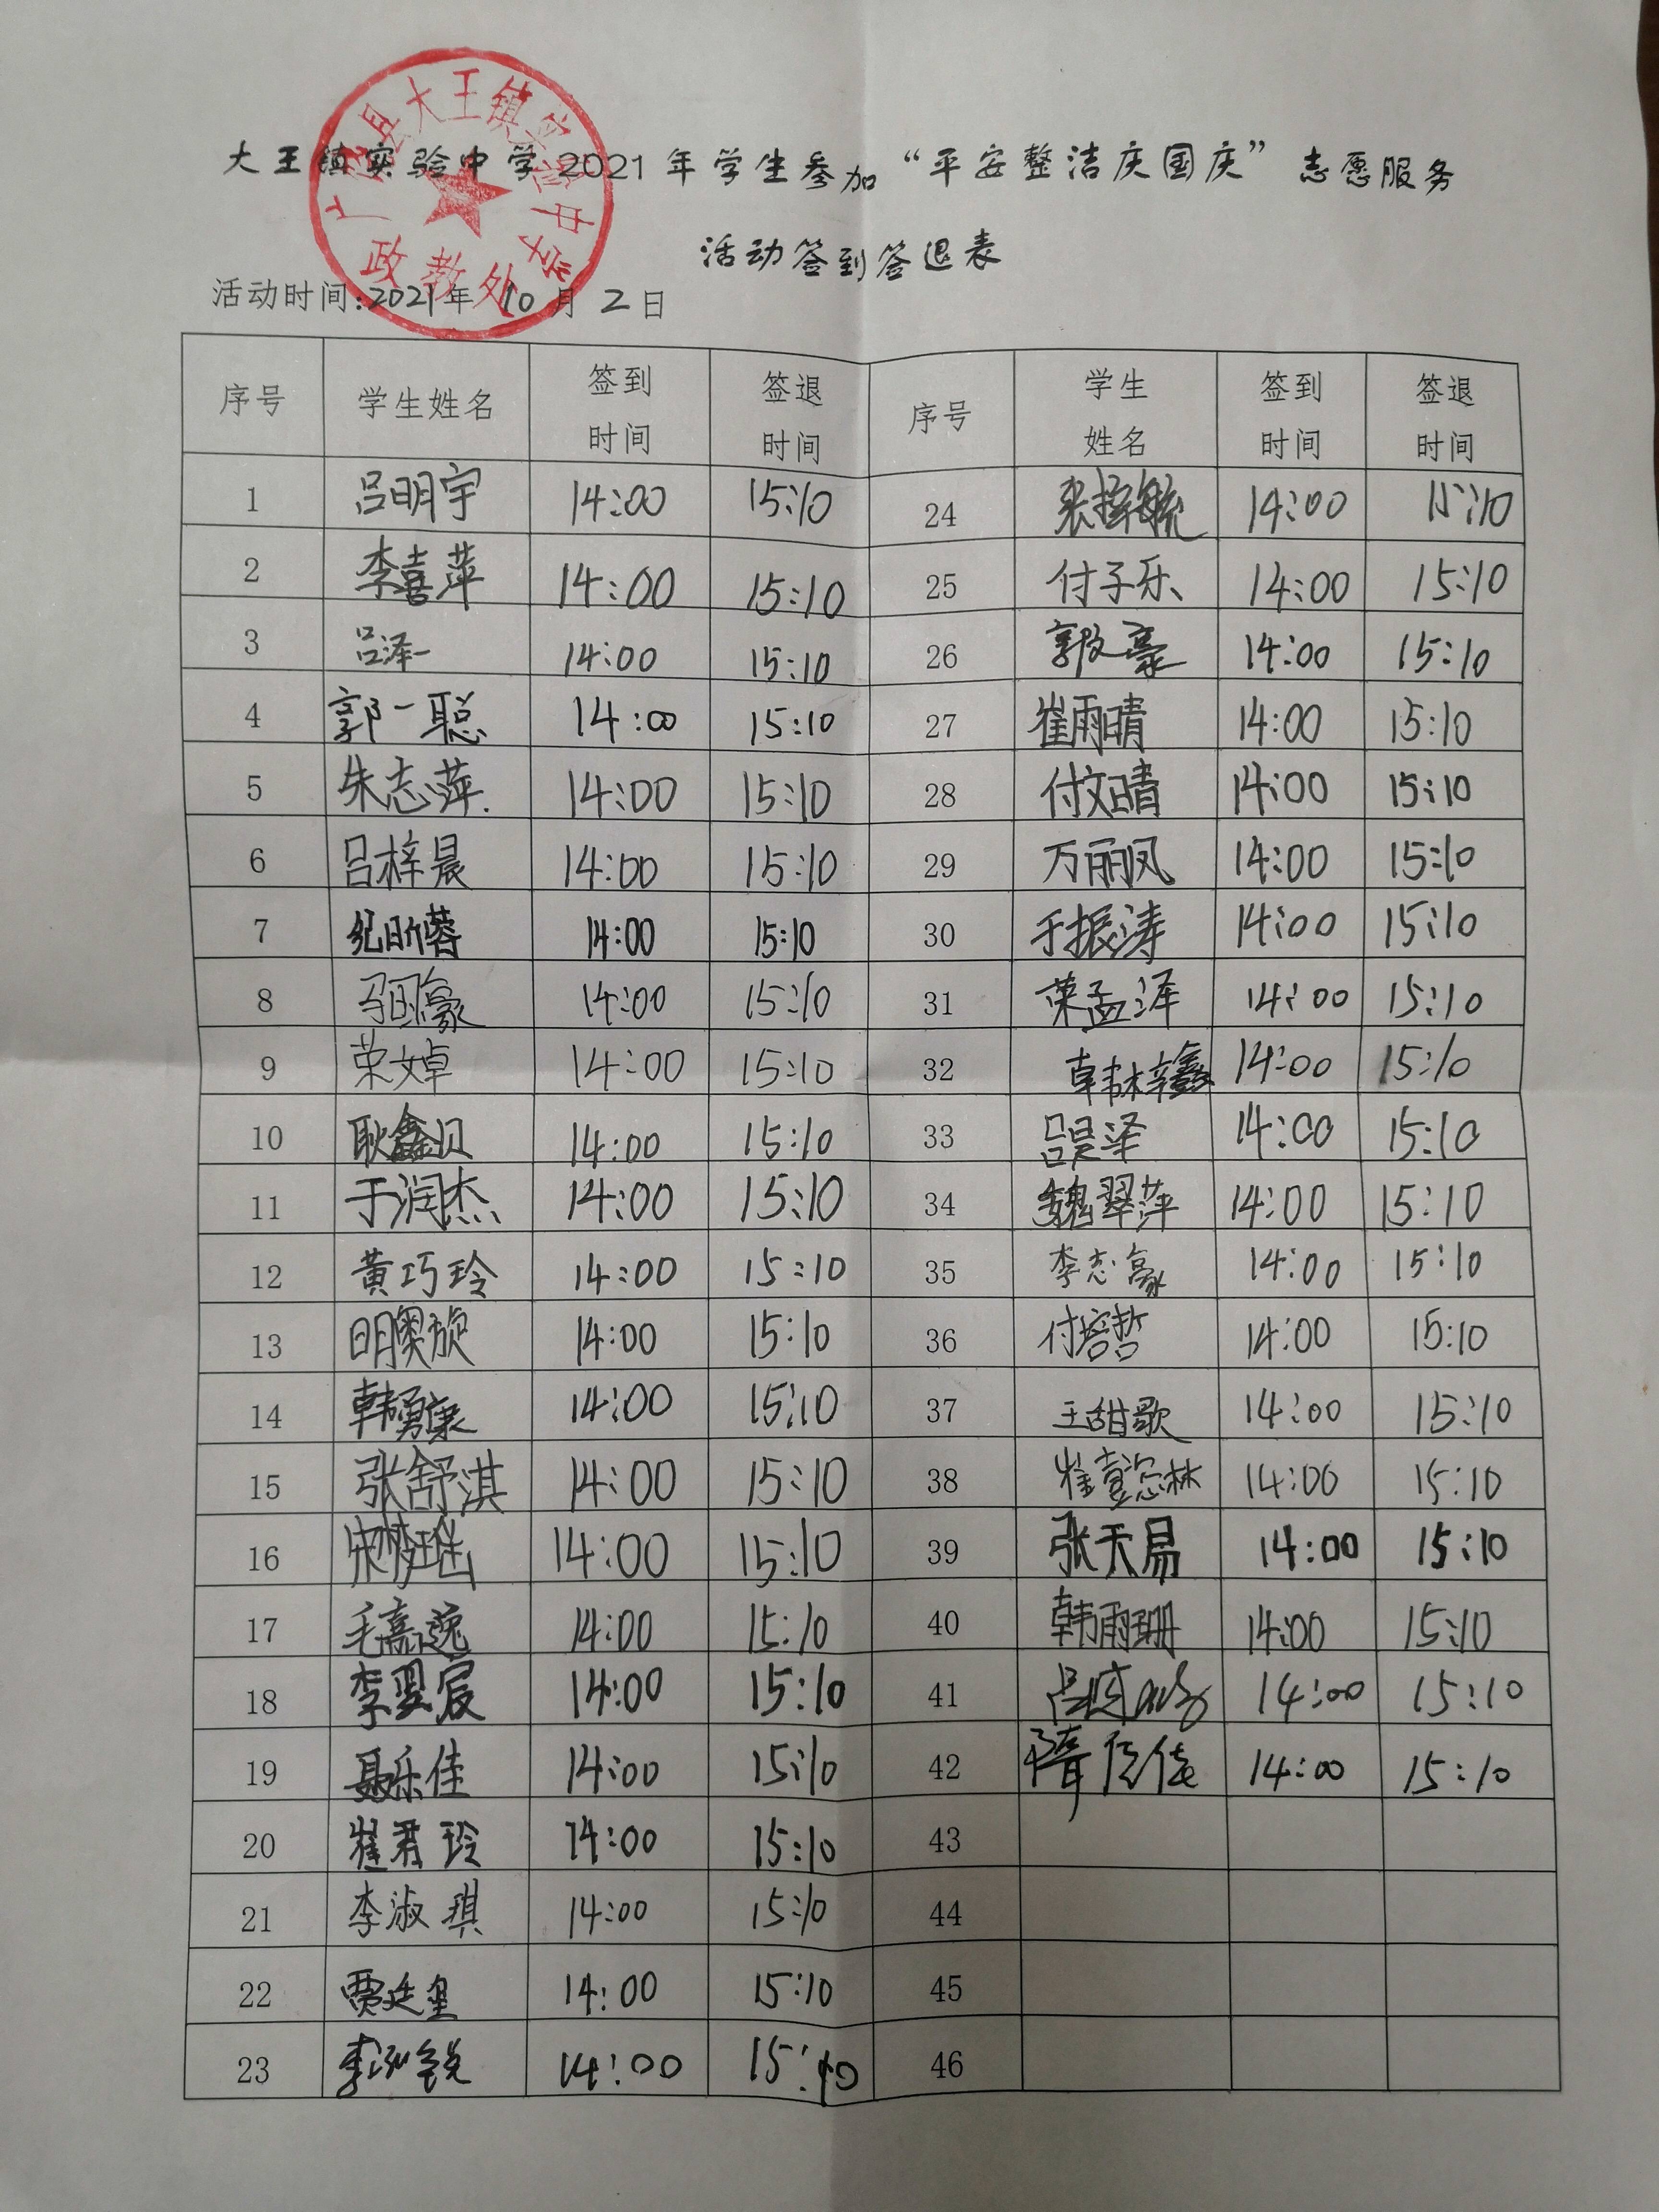 广饶县大王镇实验中学
政教处
大王镇实验中学2021年学生参加“平安整洁庆国庆”志愿服务
活动签到签退表
活动时间:2021年 10月 2日
序号 学生姓名 签到时间 签退时间 序号 学生姓名 签到时间 签退时间
1 吕明宇 14:00 15:10 24 张梓毓 14:00 15:10
2 李喜萍 14:00 15:10 25 付子乐 14:00 15:10
3 吕泽一 14:00 15:10 26 14:00 15:10
4 郭一聪 14:00 15:10 27 崔雨晴 14:00 15:10
5 朱志萍 14:00 15:10 28 付文晴 14:00 15:10
6 吕梓晨 14:00 15:10 29 万丽凤 14:00 15:10
7 纪昕蓉 14:00 15:10 30 于振涛 14:00 15:10
8 马国豪 14:00 15:10 31 荣孟泽 14:00 15:10
9 荣文卓 14:00 15:10 32 韩梓鑫 14:00 15:10
10 耿鑫贝 14:00 15:10 33 吕昊泽 14:00 15:10
11 于润杰 14:00 15:10 34 魏翠萍 14:00 15:10
12 黄巧玲 14:00 15:10 35 李志豪 14:00 15:10
13 明奥旋 14:00 15:10 36 付容哲 14:00 15:10
14 韩勇康 14:00 15:10 37 王甜歌 14:00 15:10
15 张舒淇 14:00 15:10 38 崔壹淞林 14:00 15:10
16 宋梦瑶 14:00 15:10 39 张天易 14:00 15:10
17 毛嘉逸 14:00 15:10 40 韩雨珊 14:00 15:10
18 李翌宸 14:00 15:10 41 14:00 15:10
19 聂乐佳 14:00 15:10 42 14:00 15:10
20 崔君玲 14:00 15:10 43
21 李淑琪 14:00 15:10 44
22 贾廷玺 14:00 15:10 45
23 李泓锐 14:00 15:10 46